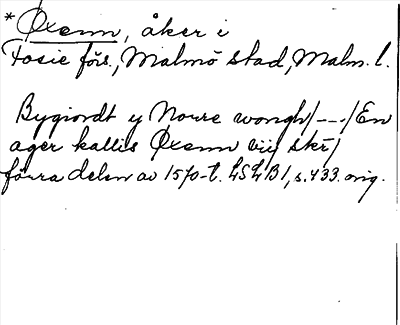 * Øxenn, åker i
Fosie förs., Malmö stad, Malm. l.
Bygiordt y Norre wongh/---/En
ager kallis Øxenn viij skr/
förra delen av 1570-t. LSLB1, s. 433. orig.